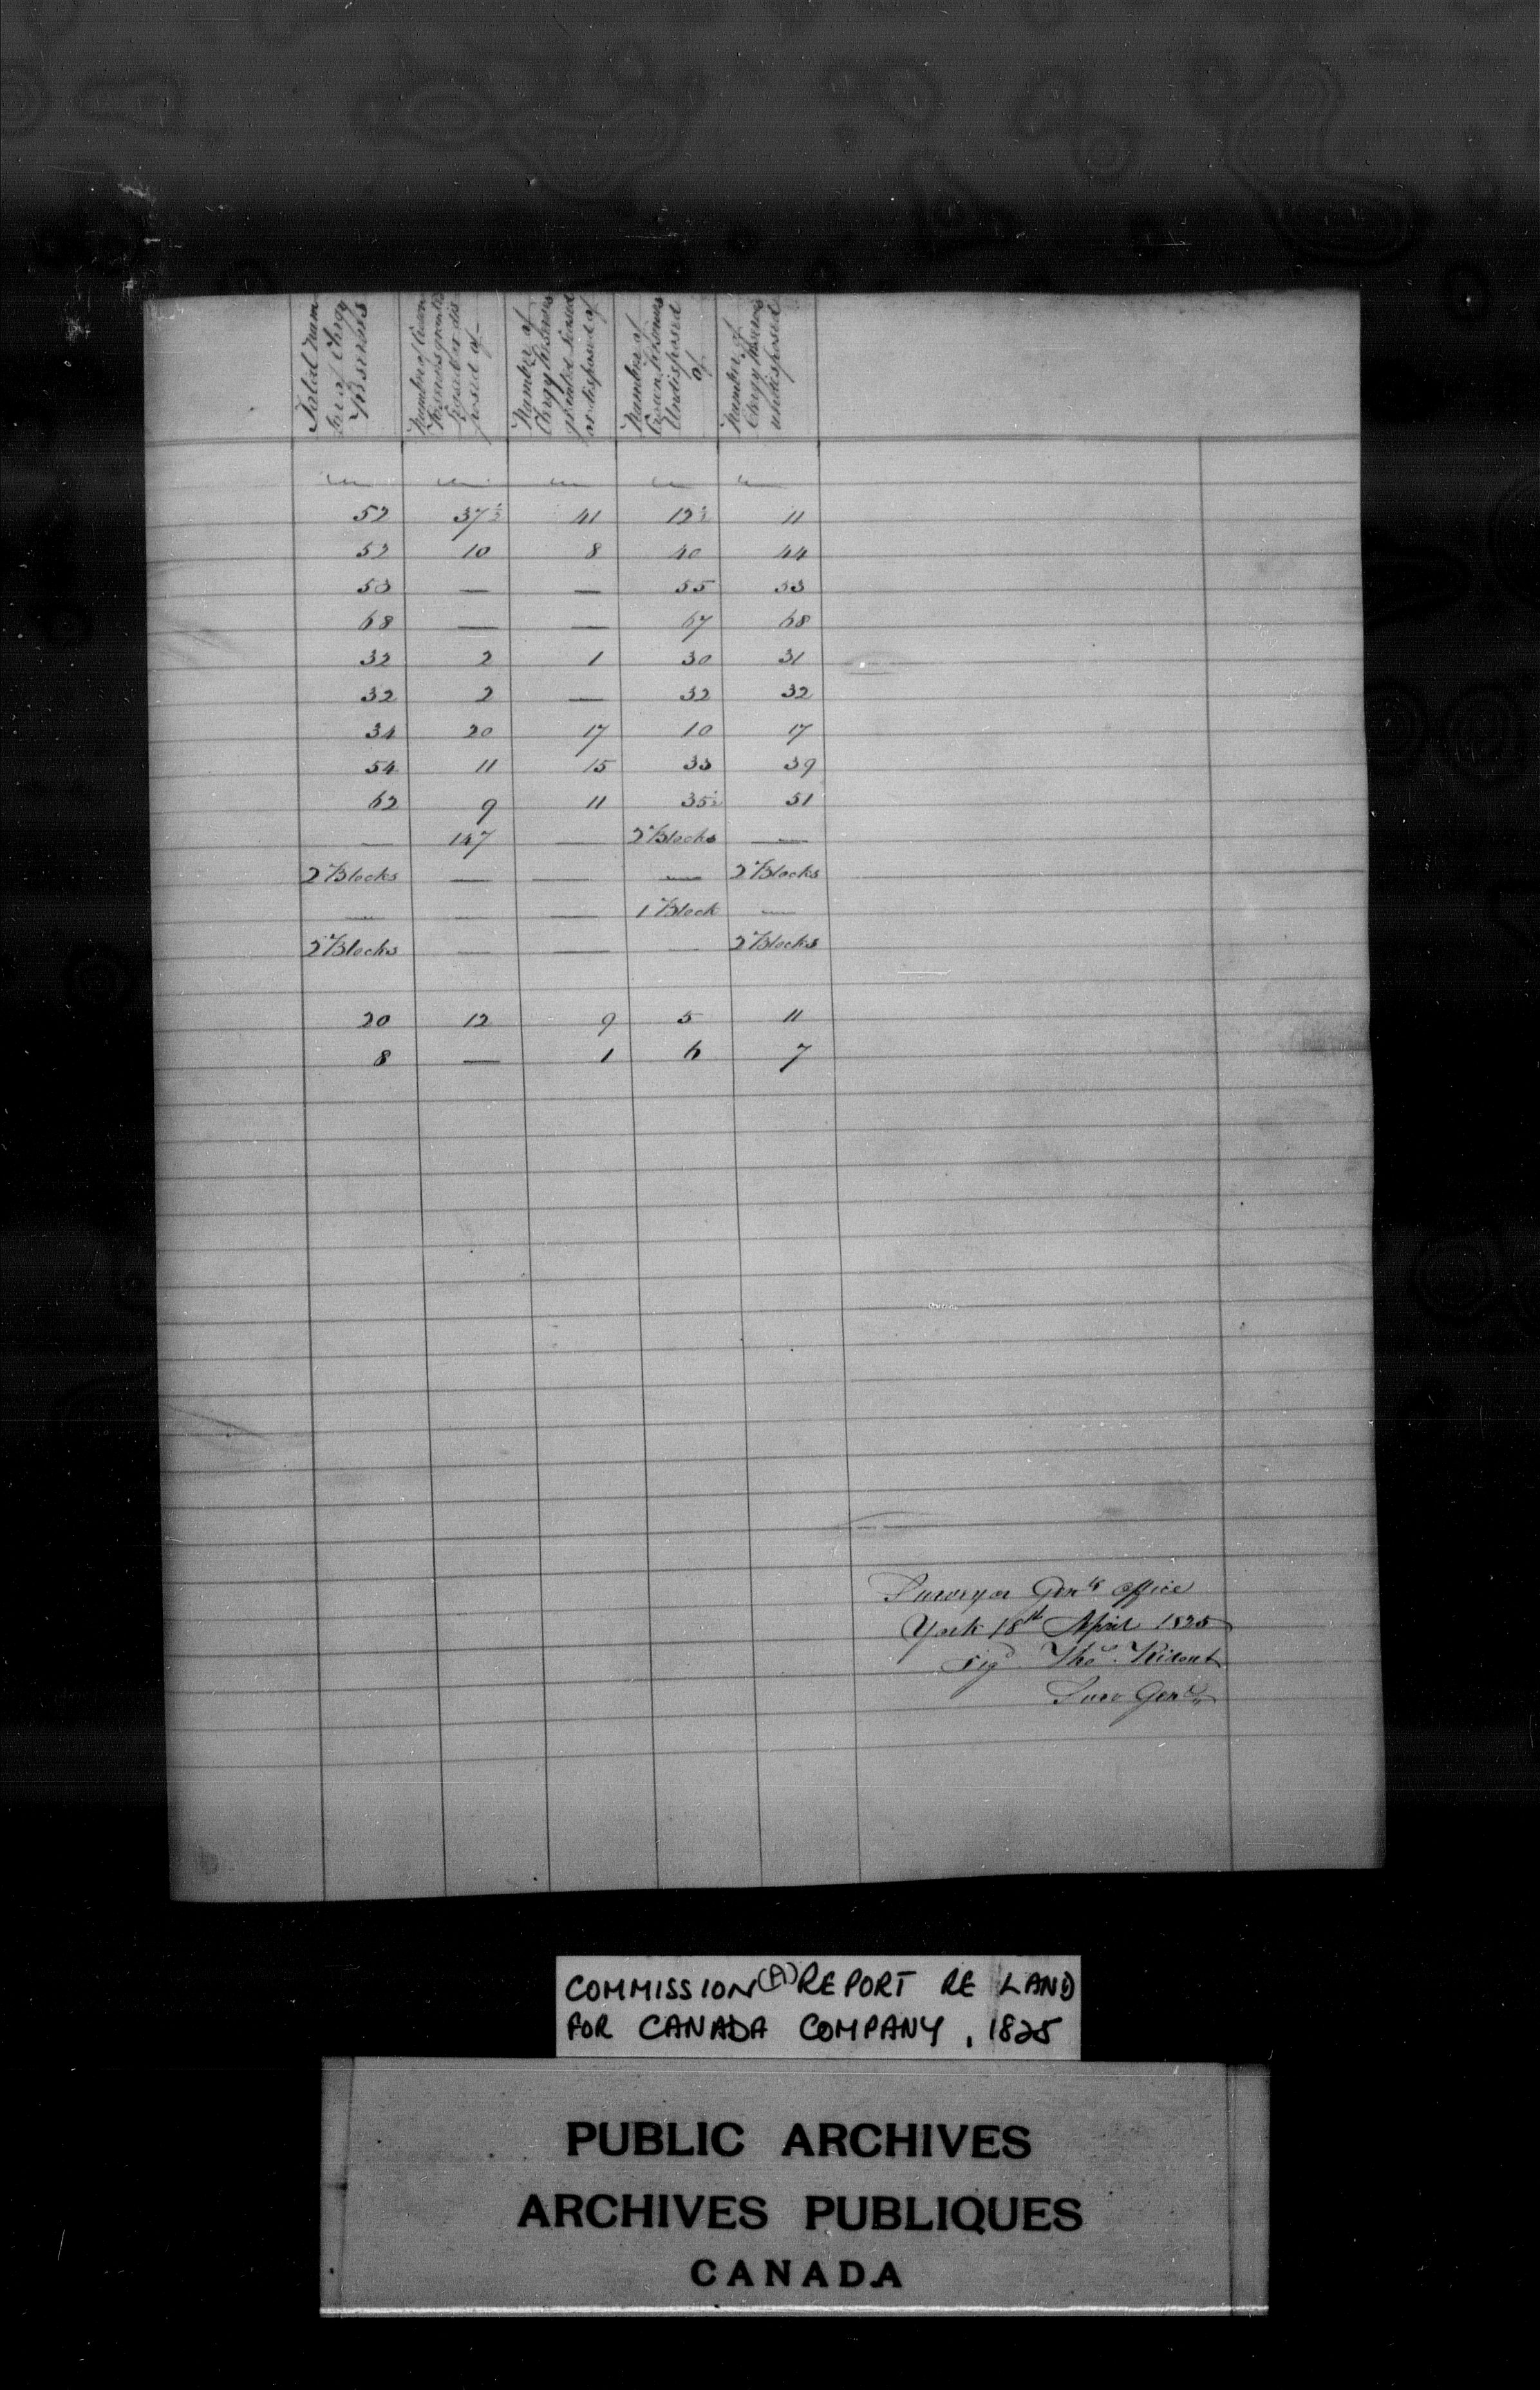 Total Num
ber of Clergy
Reserves
Number of Crown
Reserves granted
leased or dis
posed of
Number of
Clergy Reserves
granted leased
or disposed of
Number of
Crown Reserves
Undisposed
of
Number of
Clergy Reserves
undisposed
52 37½ 41 12½ 11
52 10 8 40 44
53 — — 55 53
68 — — 67 68
32 2 1 30 31
32 2 — 32 32
34 20 17 10 17
54 11 15 33 39
62 9 11 35½ 51
— 147 — 2 Blocks —
2 Blocks — — — 2 Blocks
— — — 1 Block —
2 Blocks — — — 2 Blocks
20 12 9 5 11
8 — 1 6 7
Surveyor Genls Office
York 18th April 1825
sigd Thos. Ridout
Surv Genl
COMMISSION (A) REPORT RE LAND
FOR CANADA COMPANY, 1825
PUBLIC ARCHIVES
ARCHIVES PUBLIQUES
CANADA